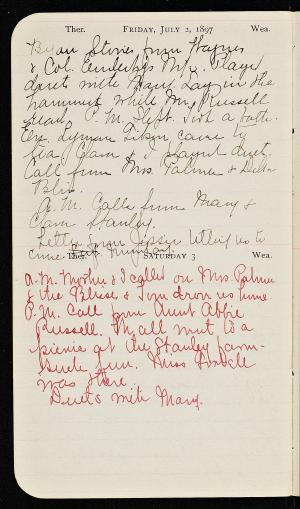 Ther. FRIDAY, JULY 2, 1897 Wea.
Began Stories from Wagner
& Col. Played
duets with Mary. Lay in the
hammock while Mrs. Russell
read. P.M. Slept. Took a bath.
Eve. Lyman Gibson came to
tea. Clara & I played duet.
Call from Mrs. Palmer & Della
Bliss.
A.M. Calls from Mary &
Clara Stanley.
Letter from telling us to
come
Ther. SATURDAY 3 Wea.
A.M. Mother & I called on Mrs. Palmer
& the Blisses & Lyn drove us home.
P.M. Call from Aunt Abbie
Russell. We all went to a
picnic at the Stanley farm.
fun. Miss
was there.
Duets with Mary.